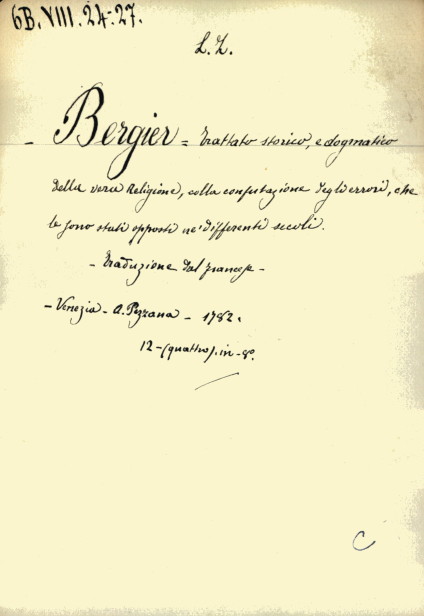 6B. VIII. 24-27.
L. Z.
- Bergier = Trattato storico, e dogmatico
della vera Religione, colla confutazione degli errori, che
le sono stati opposti ne' differenti secoli.
- Traduzione dal francese -
- Venezia - A. Pezzana - 1782.
12 - (quattro). in - 8º.
C